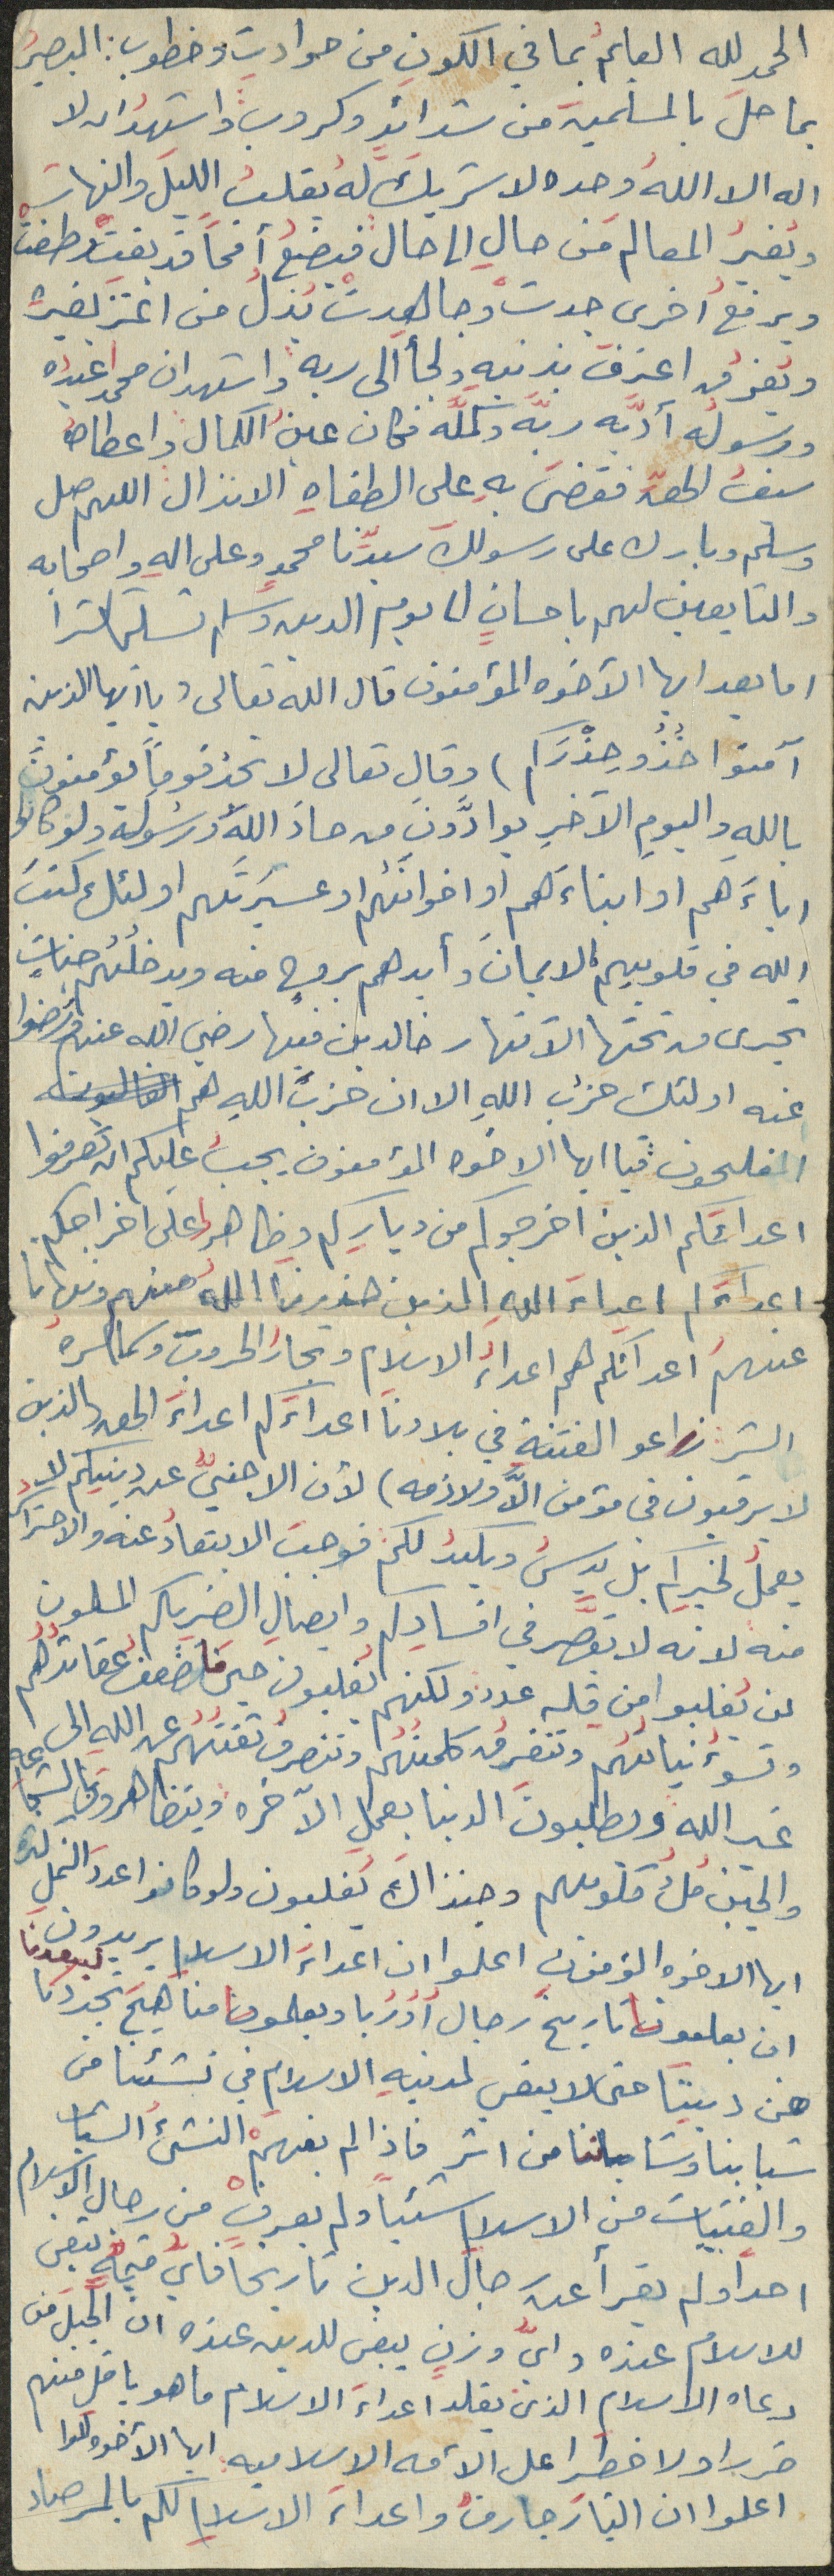 الحمد لله العالم بما في الكون من حوادث وخطوب: البصير
بما حل بالمسلمين من شدائد وكروب واشهد ان لا
اله الا الله وحده لا شريك له يقلب الليل والنهار
ويغير المعالم من حال الى حال فيضع أمماً قد بغت وطغت
ويرفع أخرى جدت وجاهدت يذل من اعتز بغيره
ويغفر لمن اعترف بذنبه ولجأ الى ربه واشهد ان محمدا عبده
ورسوله أدبه ربه وكمله فكان عين الكمال واعطاه
سيف الحق فقضى به على الطغاه الانذال اللهم صل
وسلم وبارك على رسولك سيدنا محمد وعلى اله واصحابه
والتابعين لهم باحسان الى يوم الدين وسلم تسليما كثيرا
اما بعد ايها الآخوه المؤمنون قال الله تعالى (يا ايها الذين
آمنوا خُذُو حِذْرَكم) وقال تعالى لا تجد قوماً يؤمنون
بالله واليوم الآخر يوادَّون من حادَ اللهَ ورسوله ولو كانوا
اباءَهم او ابناءَهم او اخوانَهُم او عشيرتَهم اولئك كتب
الله في قلوبهم الايمان وأيدهم بروح منه ويدخلُهُم جناتٍ
تجرى من تحتها الآنهار خالدين فيها رضي الله عنهم ورضوا
عنه اولئك حزب الله الا ان حزبَ الله هم الغالبون
المفلحون فيا ايها الاخوه المؤمنون يجب عليكم ان تعرفوا
اعدائكم الذين اخرجوكم من دياركم وظاهروا على اخراجكم.
اعدآءَكم اعداءَ الله الذين حذيرنا الله منهم ونهانا
عنهم اعدائكم هم اعداءُ الاسلام وتجارُ الحروب وسماسرةُ
الشر زاعو الفتنة في بلادنا اعدآءَكم اعداءَ الحق (الذين
لا يرقبون في مؤمن الاًّ ولا ذمه) لأن الاجنبيَّ عن دينكم لا
يعملُ لخيركم بل يدسُ ويكيدُ لكم فوجب الابتعادُ عنه والاحتراز
منه لانه لا يقصِّر في افسادكم وايصالِ الضرر لكم المسلمون
لن يُغلبوا من قله عدد ولكنهم يُغلبون حين تضعفُ عقائدُهُم
وتسوءُ نياتُهُم وتتفرقُ كلمتُهُم وتنصرفُ ثقتُهُم عن الله الى
غير الله ويطلبون الدنيا بعمل الآخره ويتظاهرون بالشجاعه
والجبن مُلُ قلوبهم وحينذاك يُغلبون ولو كانوا عدد النمل كثره
ايها الاخوه المؤمنون اعلموا ان اعداءَ الاسلام يريدون
ان يعلمونا تاريخَ رجال أوُرُبا ويعلمونا مناهِجَ تجرُدنا لتبعدنا
عن ديننا حتى لا يبقى لمدنيه الاسلام في نشئنا من
شبابنا وشاباتنا من اثر فاذا لم يفهمْ النشئُ الشبابُ
والفتيات من الاسلام شيئاً ولم يعرفْ من رجال الاسلام
احداً ولم يقرأ عن رجال الدين تاريخاً فايُّ قيمةٍ تبقى
للاسلام عنده وايُّ وزنٍ يبقى للدين عنده ان الجيلَ من
دعاه الاسلام الذي يقلد اعداءَ الاسلام ما هو باقل منهم
ضررا ولا خطرا على الآمه الاسلاميه ايها الآخوه
اعلموا ان التيارَ جارفٌ واعداءَ الاسلام لكم بالمرصاد